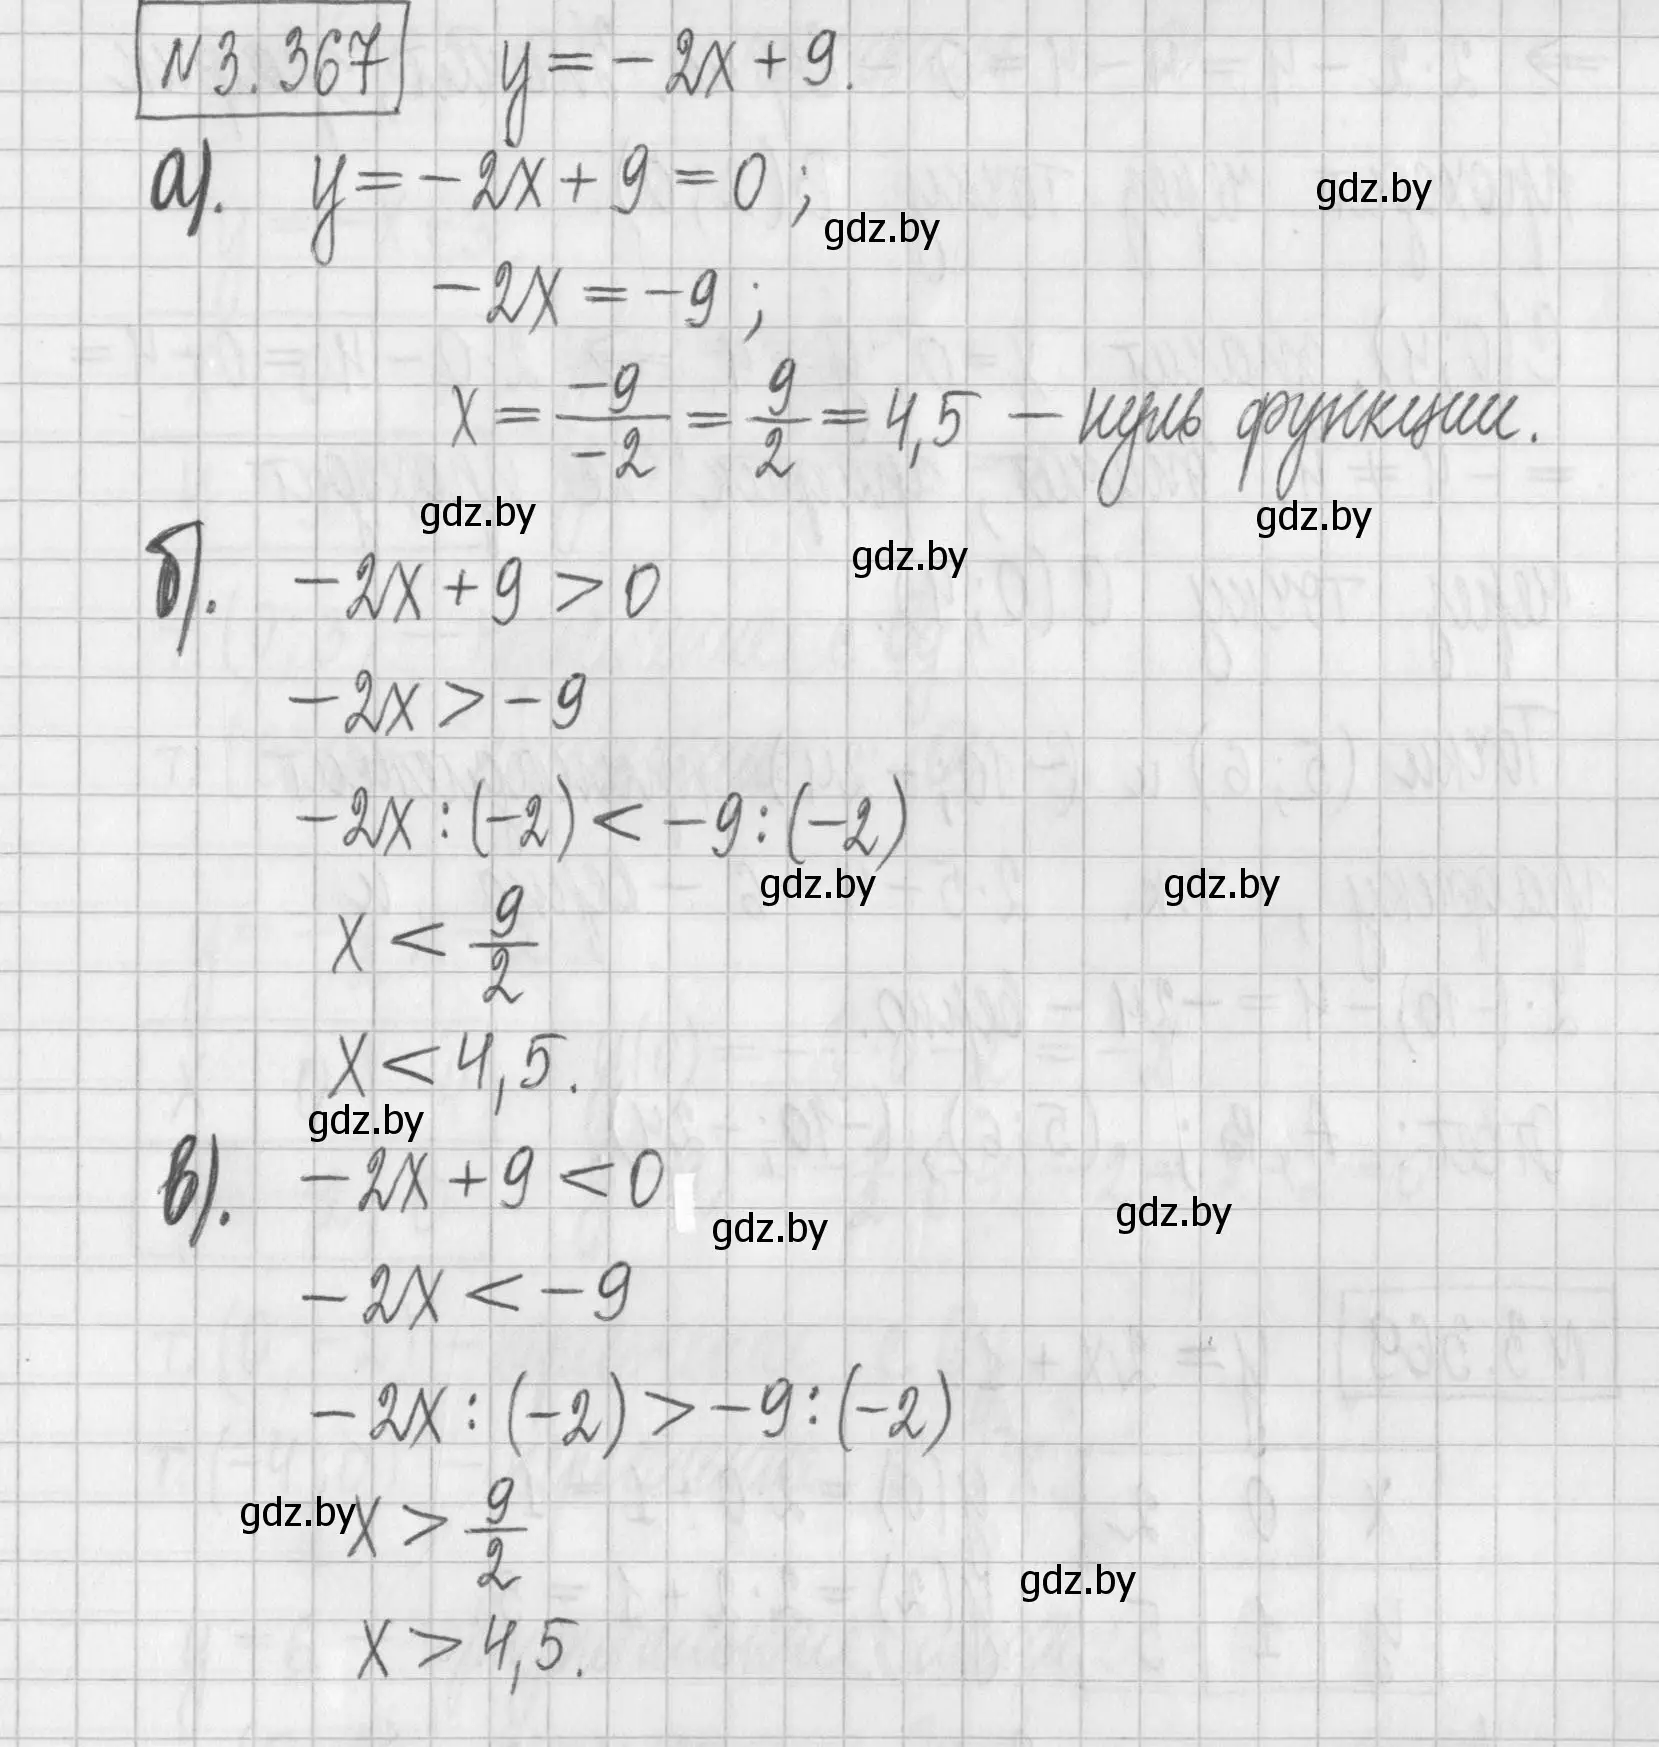 №3.367 y = -2x + 9.
а). y = -2x + 9 = 0 ;
gdz.by
gdz.by
-2x = -9 ;
x = \frac{-9}{-2} = \frac{9}{2} = 4,5 – нуль функции.
gdz.by
gdz.by
gdz.by
б). -2x + 9 > 0
-2x > -9
-2x : (-2) < -9 : (-2)
gdz.by
gdz.by
x < \frac{9}{2}
x < 4,5.
gdz.by
в). -2x + 9 < 0
gdz.by
gdz.by
-2x < -9
-2x : (-2) > -9 : (-2)
gdz.by
x > \frac{9}{2}
gdz.by
x > 4,5.